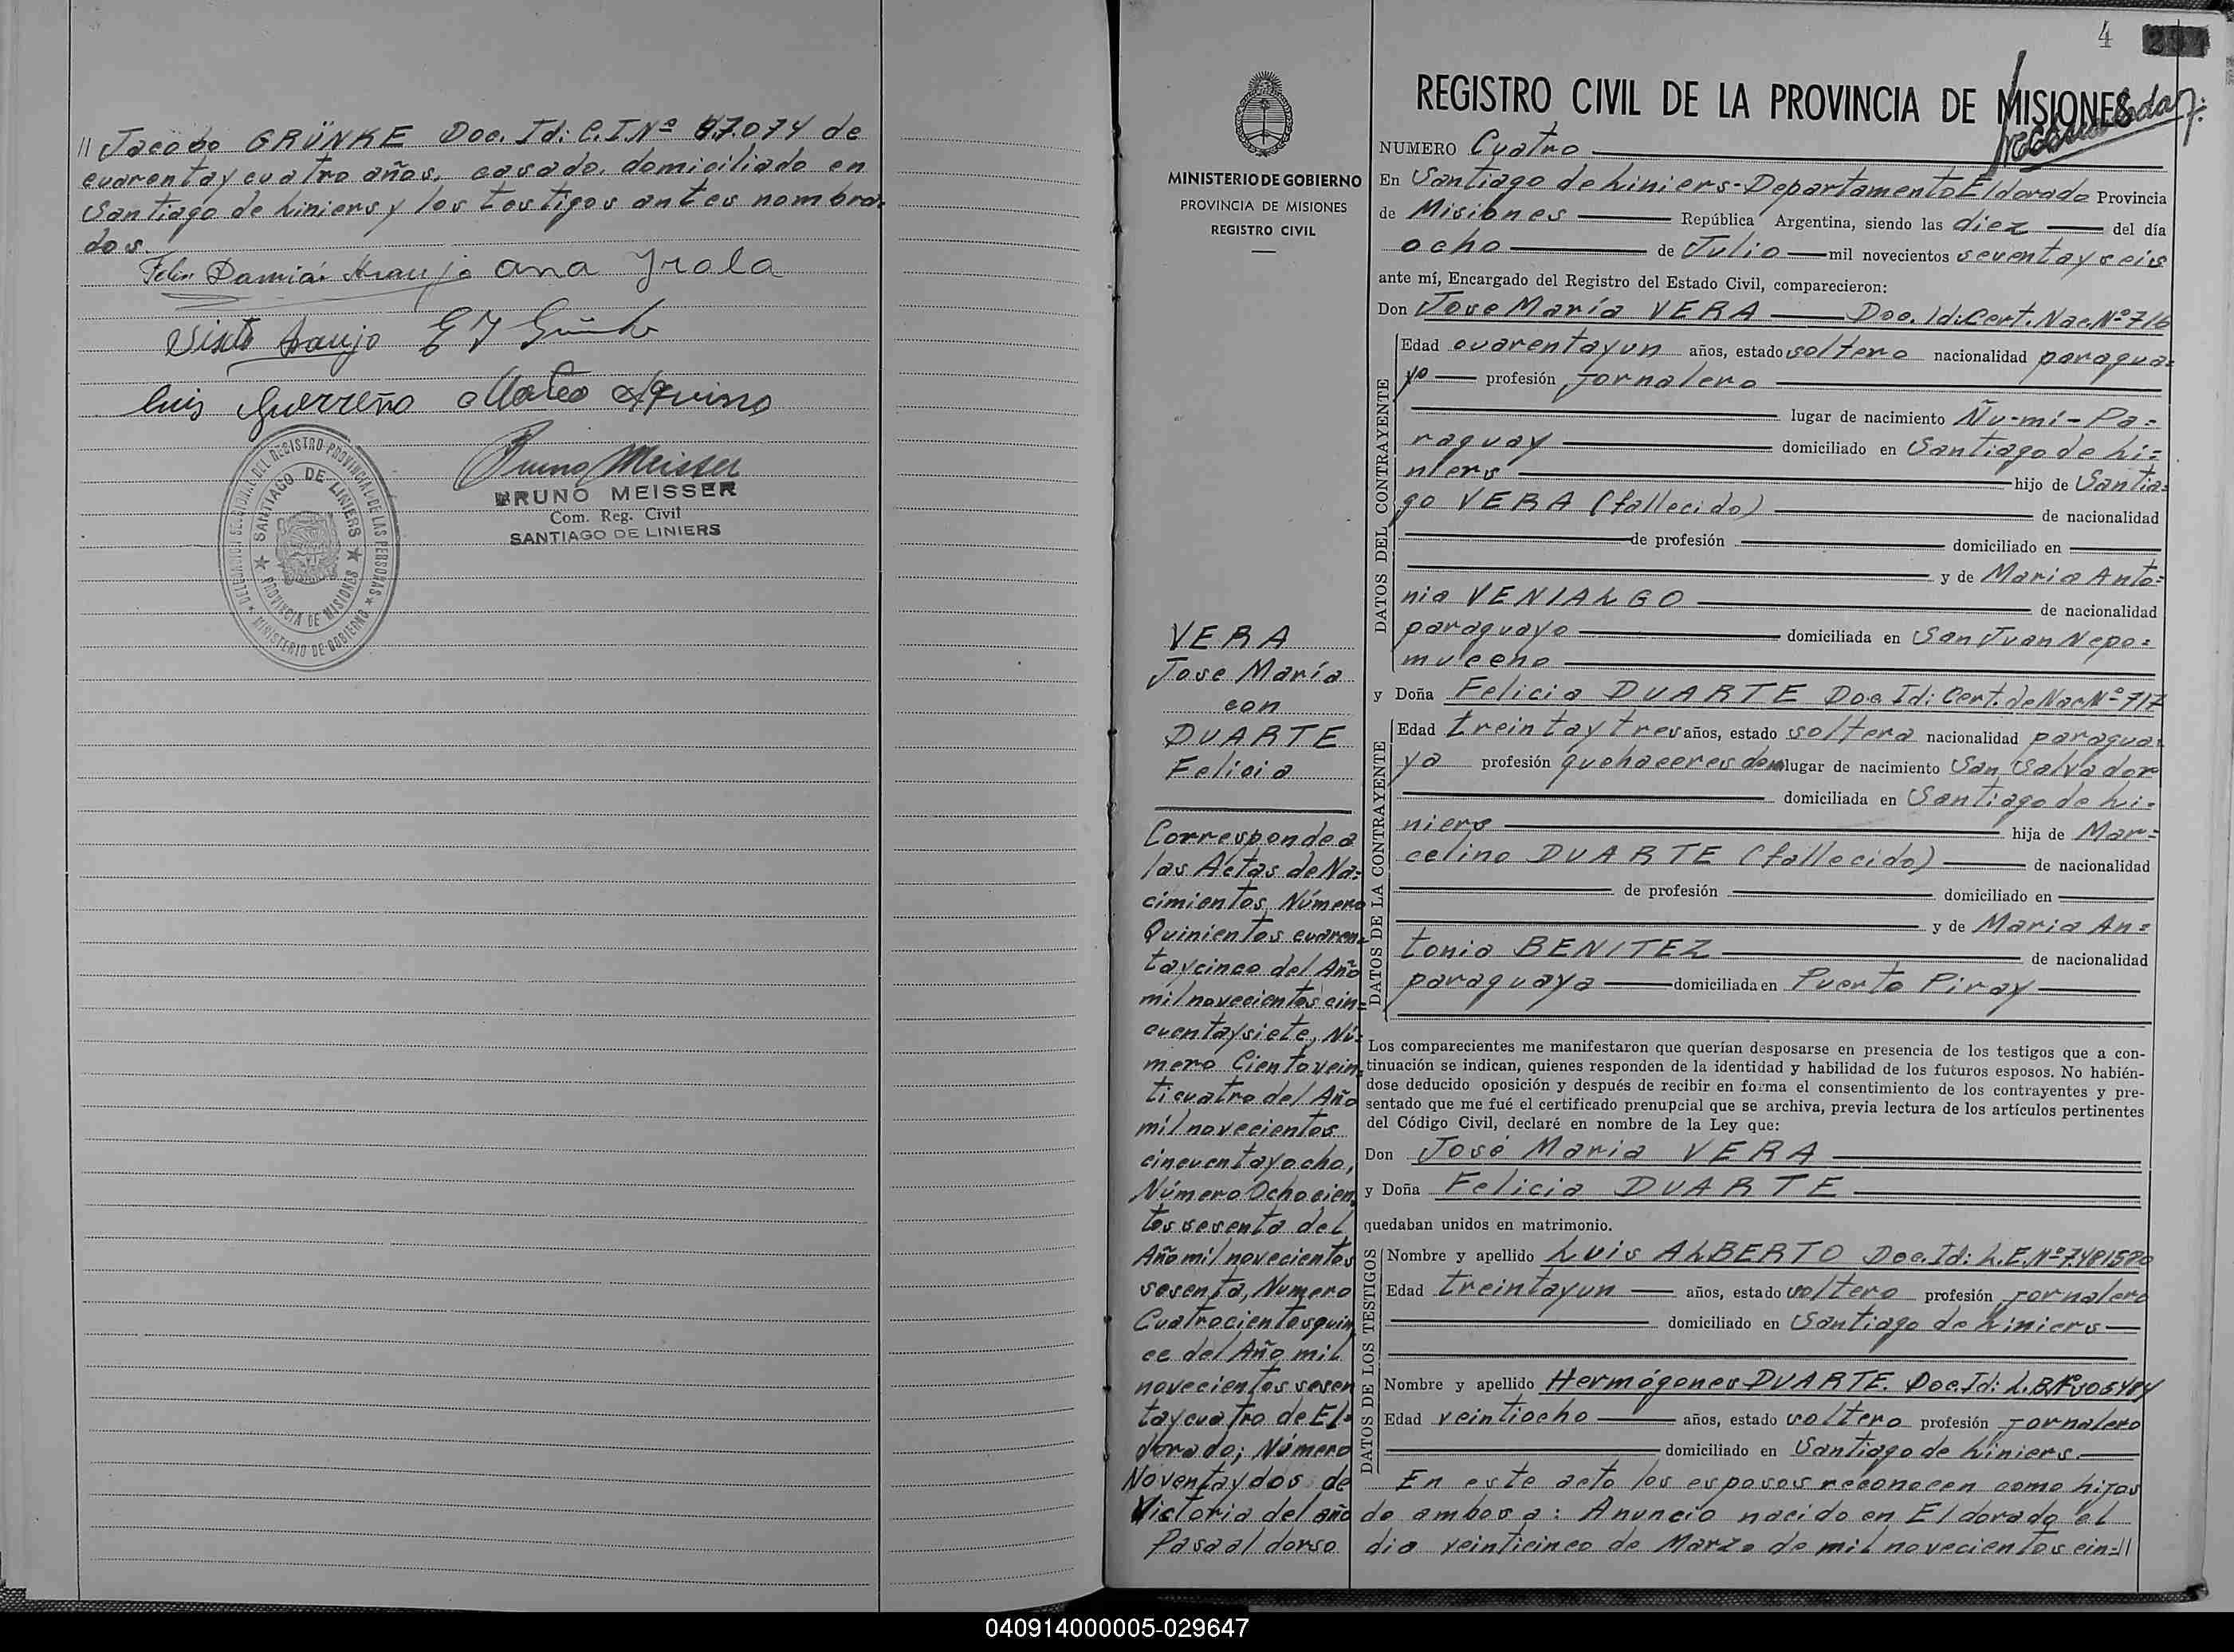 // Jacobo GRÜNKE Doc. Id: C.I.Nº 47.074 de
cuarentaycuatro años, casado, domiciliado en
Santiago de Liniers y los testigos antes nombra=
dos.
Damián Araujo Ana Yrola
Sixto Araujo
Luis Guerreño Mateo Aquino
Bruno Meisser
BRUNO MEISSER
Com. Reg. Civil
SANTIAGO DE LINIERS
DELEGACION SECCIONAL DEL REGISTRO PROVINCIAL DE LAS PERSONAS
MINISTERIO DE GOBIERNO
SANTIAGO DE LINIERS
PROVINCIA DE MISIONES
4
REGISTRO CIVIL DE LA PROVINCIA DE MISIONES
MINISTERIO DE GOBIERNO
PROVINCIA DE MISIONES
REGISTRO CIVIL
NUMERO Cuatro
En Santiago de Liniers-Departamento Eldorado Provincia
de Misiones República Argentina, siendo las diez del día
ocho de Julio mil novecientos seventayseis
ante mí, Encargado del Registro del Estado Civil, comparecieron:
Don Jose María VERA Doc. Id:Cert.Nac.Nº716
DATOS DEL CONTRAYENTE
Edad cuarentayun años, estado soltero nacionalidad paragua=
yo profesión jornalero
lugar de nacimiento Ñu-mí-Pa=
raguay domiciliado en Santiago de Li=
niers hijo de Santia=
go VERA (fallecido) de nacionalidad
de profesión domiciliado en
y de Maria Anto=
nia VENIALGO de nacionalidad
paraguaya domiciliada en San Juan Nepo=
muceno
y Doña Felicia DUARTE Doc Id: Cert.deNacNº717
DATOS DE LA CONTRAYENTE
Edad treintaytres años, estado soltera nacionalidad paragua=
ya profesión quehaceres dom lugar de nacimiento San Salvador
domiciliada en Santiago de Li=
niers hija de Mar=
celino DUARTE (fallecido) de nacionalidad
de profesión domiciliado en
y de Maria An=
tonia BENITEZ de nacionalidad
paraguaya domiciliada en Puerto Piray
Los comparecientes me manifestaron que querían desposarse en presencia de los testigos que a con-
tinuación se indican, quienes responden de la identidad y habilidad de los futuros esposos. No habién-
dose deducido oposición y después de recibir en forma el consentimiento de los contrayentes y pre-
sentado que me fué el certificado prenupcial que se archiva, previa lectura de los artículos pertinentes
del Código Civil, declaré en nombre de la Ley que:
Don José Maria VERA
y Doña Felicia DUARTE
quedaban unidos en matrimonio.
DATOS DE LOS TESTIGOS
Nombre y apellido Luis ALBERTO Doc.Id: L.E.Nº7.481580
Edad treintayun años, estado soltero profesión jornalero
domiciliado en Santiago de Liniers
Nombre y apellido Hermógenes DUARTE. Doc.Id:
Edad veintiocho años, estado soltero profesión jornalero
domiciliado en Santiago de Liniers.
En este acto los esposos reconocen como hijos
de ambos a: Anuncio nacido en Eldorado el
dia veinticinco de Marzo de mil novecientos cin=//
VERA
Jose María
con
DUARTE
Felicia
Corresponde a
las Actas de Na=
cimientos Número
Quinientos cuaren=
taycinco del Año
mil novecientos cin=
cuentaysiete, Nú=
mero Cientovein=
ticuatro del Año
mil novecientos
cincuentayocho,
Número Ochocien=
tos sesenta del
Año mil novecientos
sesenta, Numero
Cuatrocientosquin
ce del Año mil
novecientos sesen
taycuatro de El=
dorado; Número
Noventaydos de
Victoria del año
Pasa al dorso
040914000005-029647